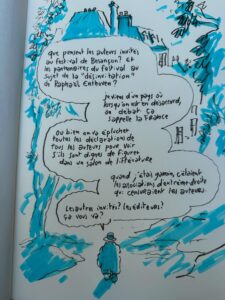 que pensent les auteurs invités
au festival de Besançon? et
les partenaires du festival au
sujet de la "désinvitation"
de Raphaël Enthoven?
je viens d'un pays où
lorsqu'on est en désaccord,
on débat. ça
s'appelle la France
Ou bien on va éplucher
toutes les déclarations de
tous les auteurs pour voir
s'ils sont dignes de figurer
dans un salon de littérature
quand j'étais gamin, c'étaient
les associations d'extrême droite
qui censuraient les auteurs.
Les autres invités? Les éditeurs?
ça vous va?